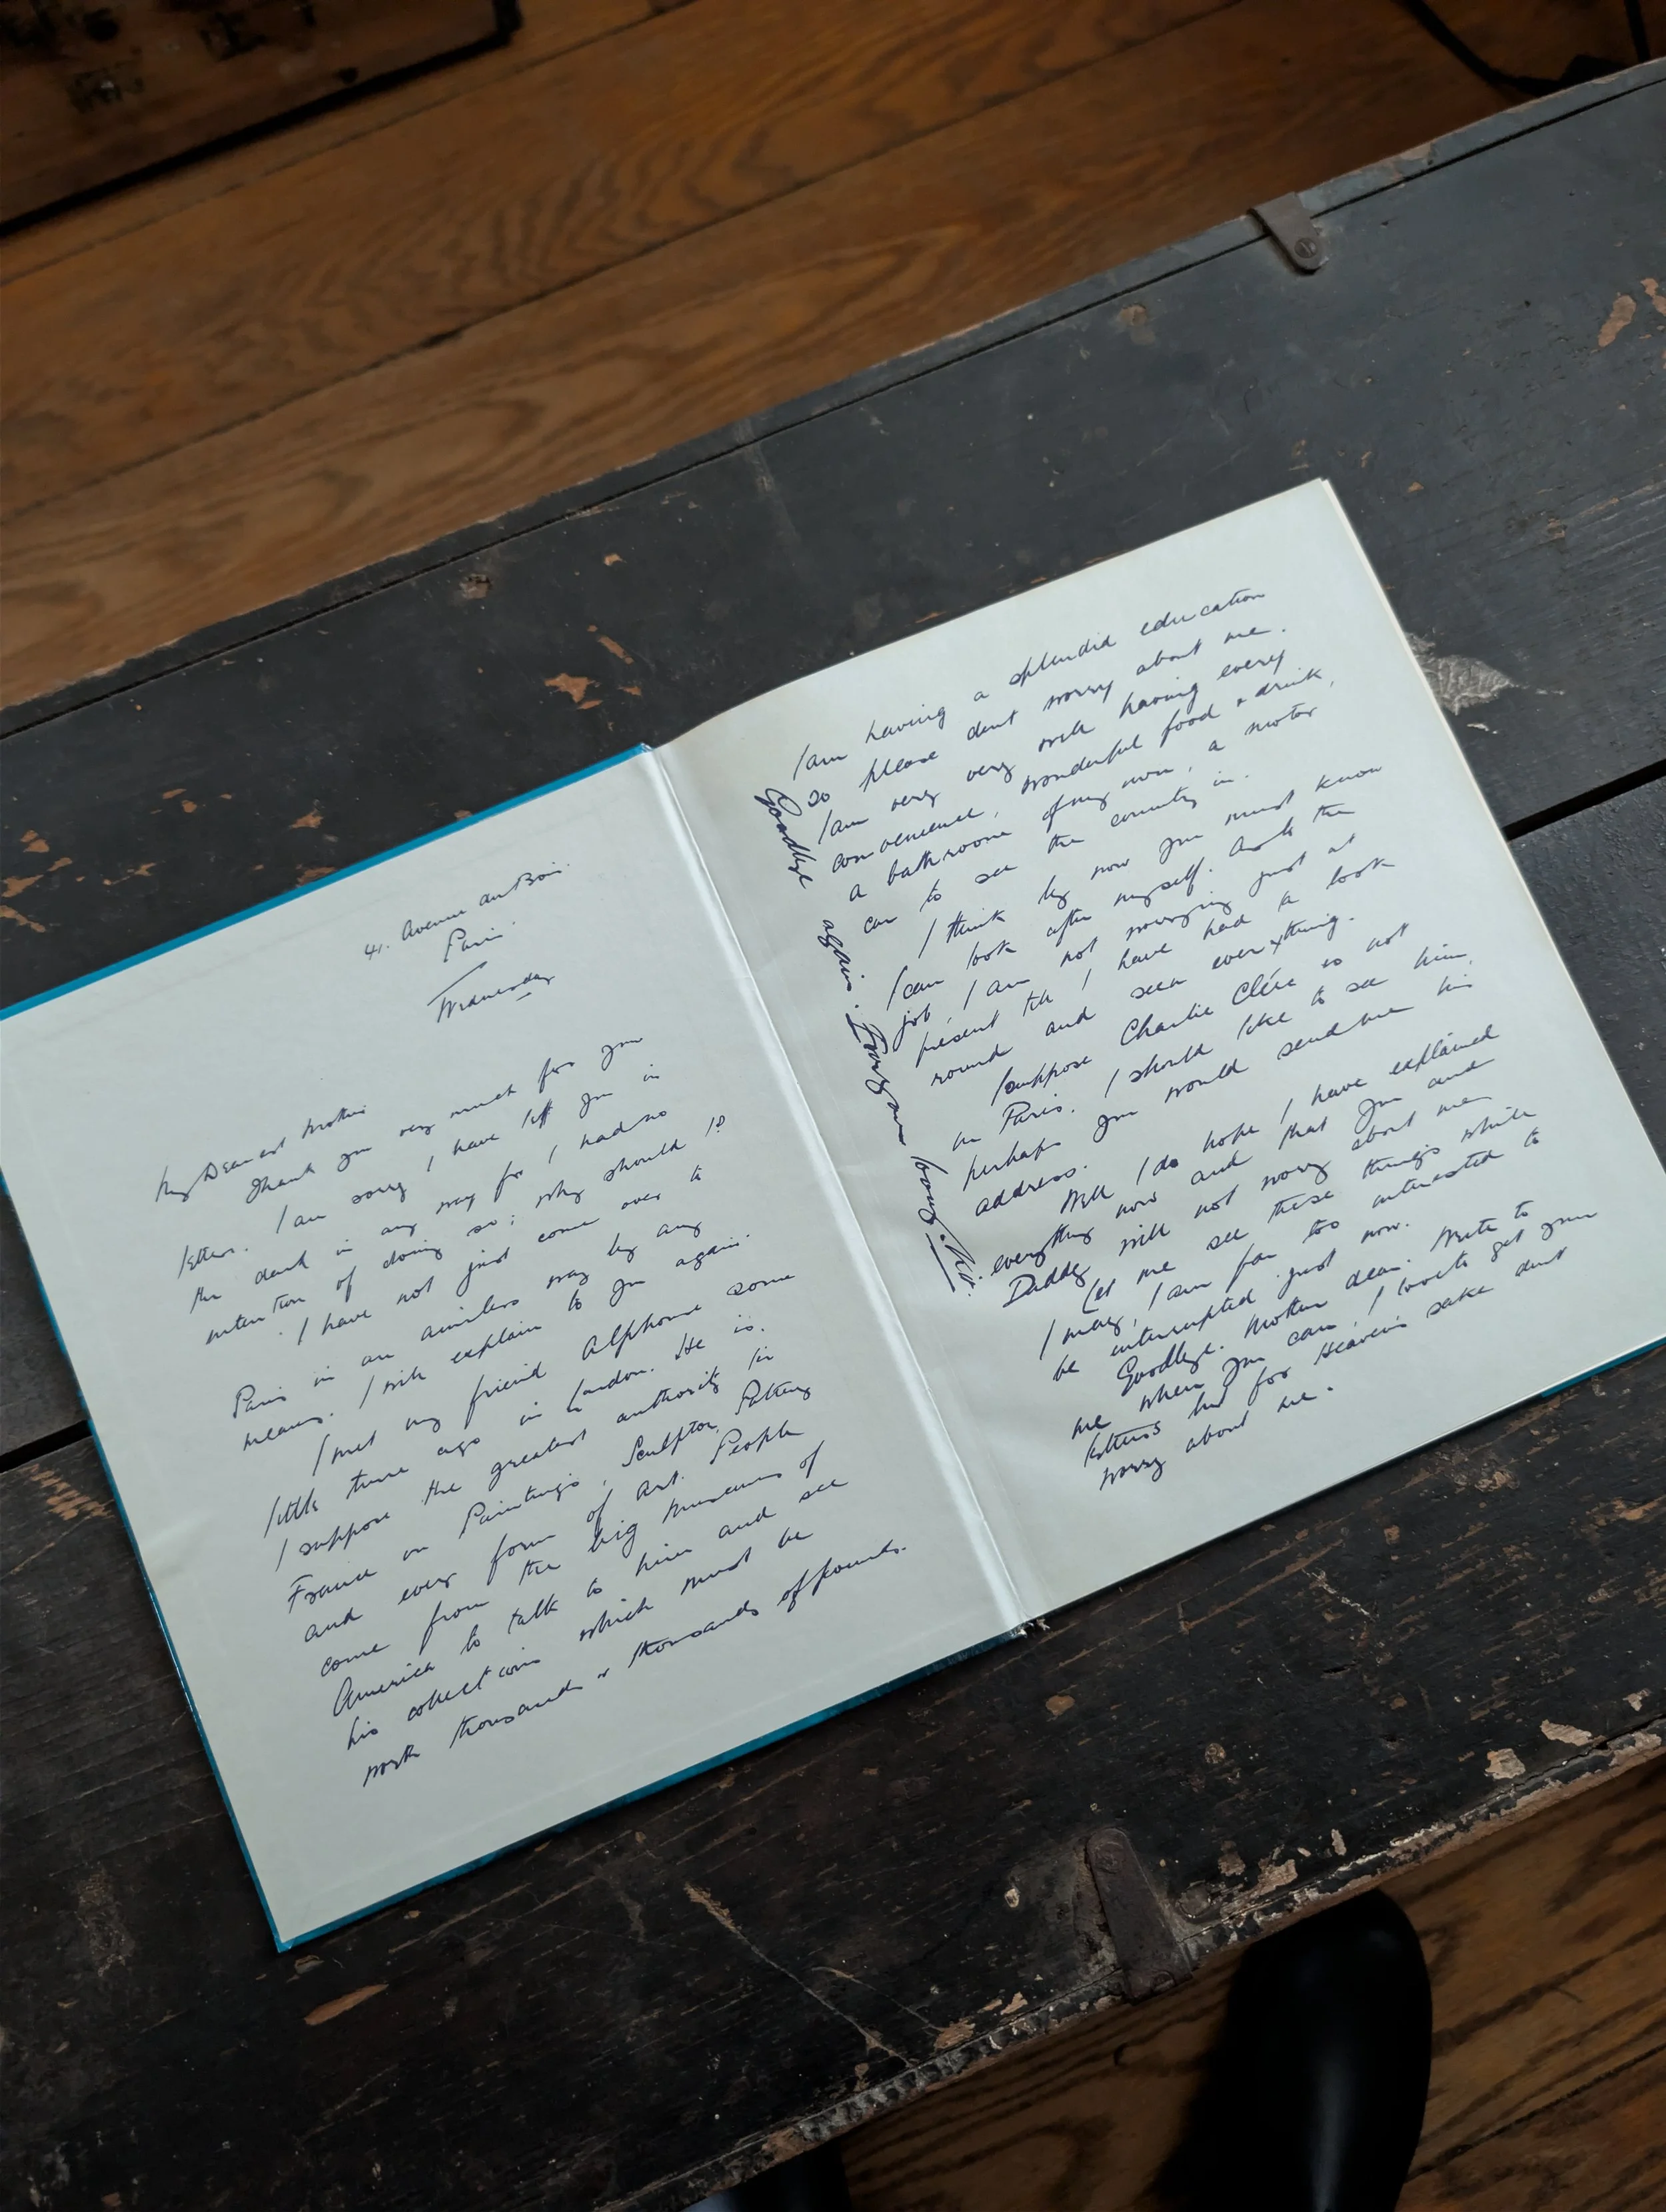 41. Avenue du Bois
Paris.
Wednesday
My Dearest Mother
Thank you very much for your
letters. I am sorry I have left you in
the dark in any way for I had no
intention of doing so; why should I?
. I have not just come over to
Paris in an aimless way by any
means. I will explain to you again.
I met my friend Alphonse some
little time ago in London. He is.
I suppose the greatest authority in
France on Paintings, Sculptor, Pottery
and every form of Art. People
come from the big Museums of
America to talk to him and see
his collections which must be
worth thousands & thousands of pounds.
I am having a splendid education
so please dont worry about me.
I am very very well having every
convenience, wonderful food & drink,
a bathroom of my own, a motor
car to see the country in.
I think by now you must know
I can look after myself. And the
job, I am not worrying just at
present till I have had a look
round and seen everything.
I suppose Charlie Clére is not
in Paris. I should like to see him,
perhaps you would send me his
address.
Well I do hope I have explained
everything now and that you and
Daddy will not worry about me
Let me see these things while
I may, I am far too interested to
be interrupted just now.
Goodbye. Mother dear. Write to
me when you can, I love to get your
letters but for Heaven's sake dont
worry about me.
Goodbye again. Ever your loving. Kit.